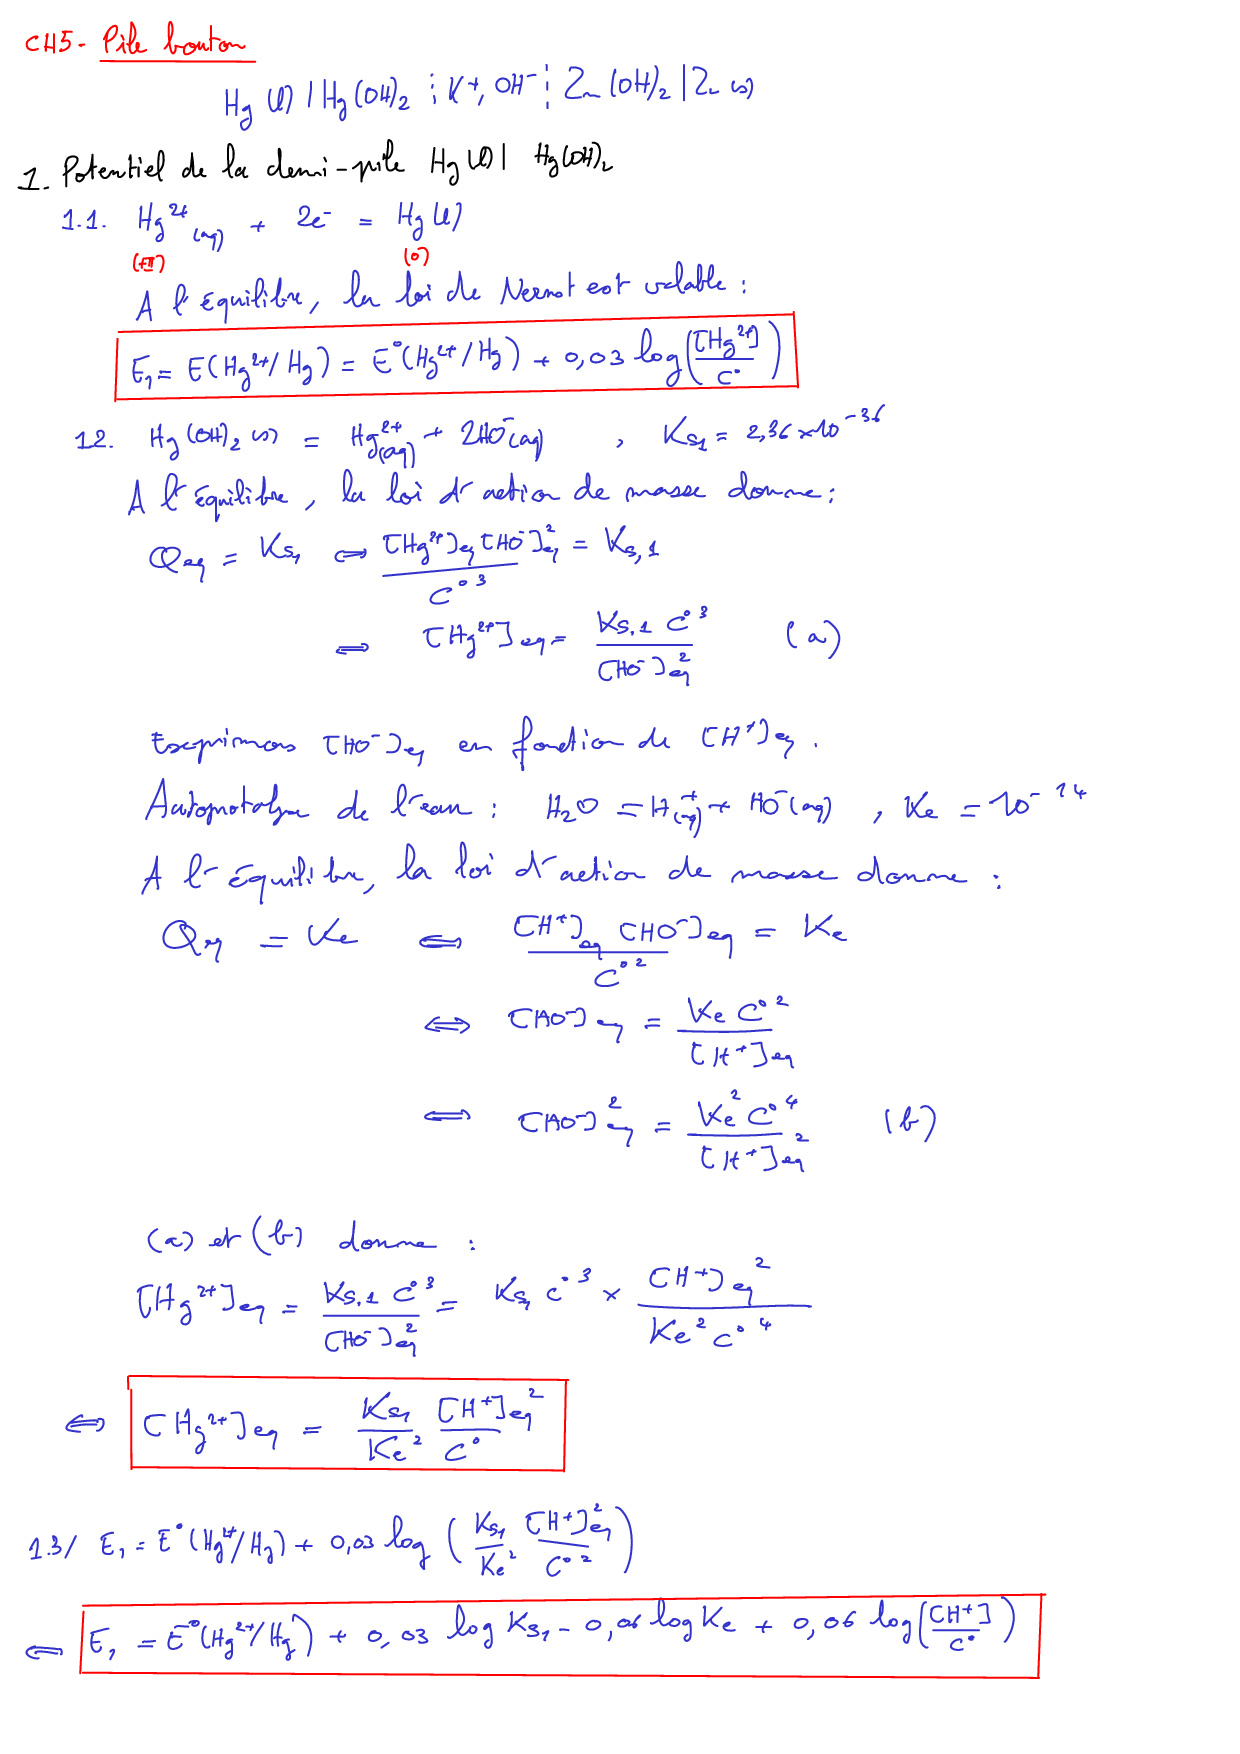 CH5- Pile bouton
Hg (l) | Hg(OH)₂ ¦ K⁺, OH⁻ ¦ Zn(OH)₂ | Zn (s)
1. Potentiel de la demi-pile Hg (l) | Hg(OH)₂
1.1. Hg²⁺(aq) + 2e⁻ = Hg(l)
(+II) (0)
A l'équilibre, la loi de Nernst est valable :
E₁ = E(Hg²⁺/Hg) = E°(Hg²⁺/Hg) + 0,03 log([Hg²⁺]/C°)
1.2. Hg(OH)₂ (s) = Hg²⁺(aq) + 2HO⁻(aq) , Ks₁ = 2,36 × 10⁻³⁶
A l'équilibre, la loi d'action de masse donne :
Qeq = Ks₁ ⇔ [Hg²⁺]eq [HO⁻]²eq / C°³ = Ks,1
⇔ [Hg²⁺]eq = Ks,1 C°³ / [HO⁻]²eq (a)
Exprimons [HO⁻]eq en fonction de [H⁺]eq.
Autoprotolyse de l'eau : H₂O = H⁺(aq) + HO⁻(aq) , Ke = 10⁻¹⁴
A l'équilibre, la loi d'action de masse donne :
Qeq = Ke ⇔ [H⁺]eq [HO⁻]eq / C°² = Ke
⇔ [HO⁻]eq = Ke C°² / [H⁺]eq
⇔ [HO⁻]²eq = Ke² C°⁴ / [H⁺]²eq (b)
(a) et (b) donne :
[Hg²⁺]eq = Ks,1 C°³ / [HO⁻]²eq = Ks₁ C°³ × [H⁺]eq² / Ke² C°⁴
⇔ [Hg²⁺]eq = Ks₁/Ke² [H⁺]eq²/C°
1.3/ E₁ = E°(Hg²⁺/Hg) + 0,03 log (Ks₁/Ke² [H⁺]²eq/C°²)
⇔ E₁ = E°(Hg²⁺/Hg) + 0,03 log Ks₁ - 0,06 log Ke + 0,06 log([H⁺]/C°)